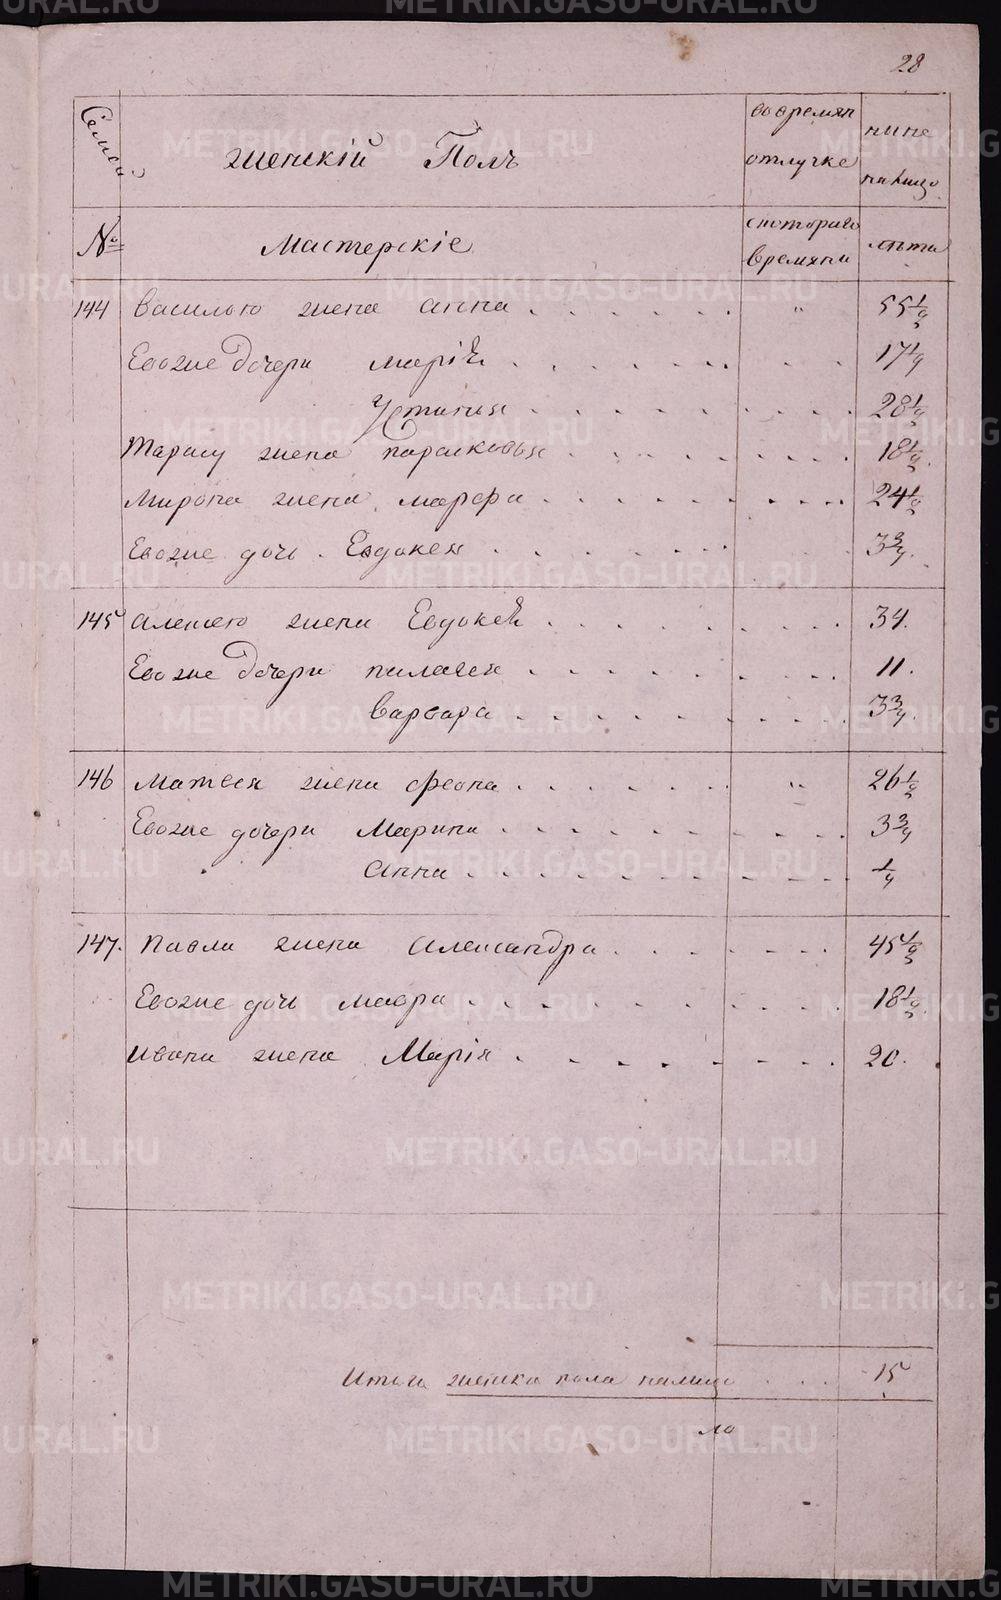 28
Семей
женскій Полъ
во времян
отлучке
ныне
на лицо
№
Мастерскіе
с которого
времяни
лета
144 Василью жена анна . . . . . . " 55 1/2
Евоже Дочери маріѣ . . . . . . . . 17 1/4
Устинья . . . . . . . . . 28 1/2
Тарасу жена парасковья . . . . . . . . 18 1/2.
Мирона жена марфа . . . . . . . . . 24 1/2
Евоже дочь . Евдокея . . . . . . . . 3 3/4.
145 алексею жена Евдокеѣ . . . . . . . . . 34.
Евоже Дочери пилагея . . . . . . . . . 11.
варвара . . . . . . . . . . 3 3/4.
146 Матвея жена феона . . . . . . . " 26 1/2
Евоже дочери Марина . . . . . . . . . . 3 3/4
Анна . . . . . . . . . . 1/4
147. павла жена Александра . . . . . . . 45 1/2
Евоже дочь мавра . . . . . . . . . 18 1/2.
ивана жена Марія . . . . . . . . 20.
Итого женска пола налицо . . . . 15
ло
METRIKI.GASO-URAL.RU